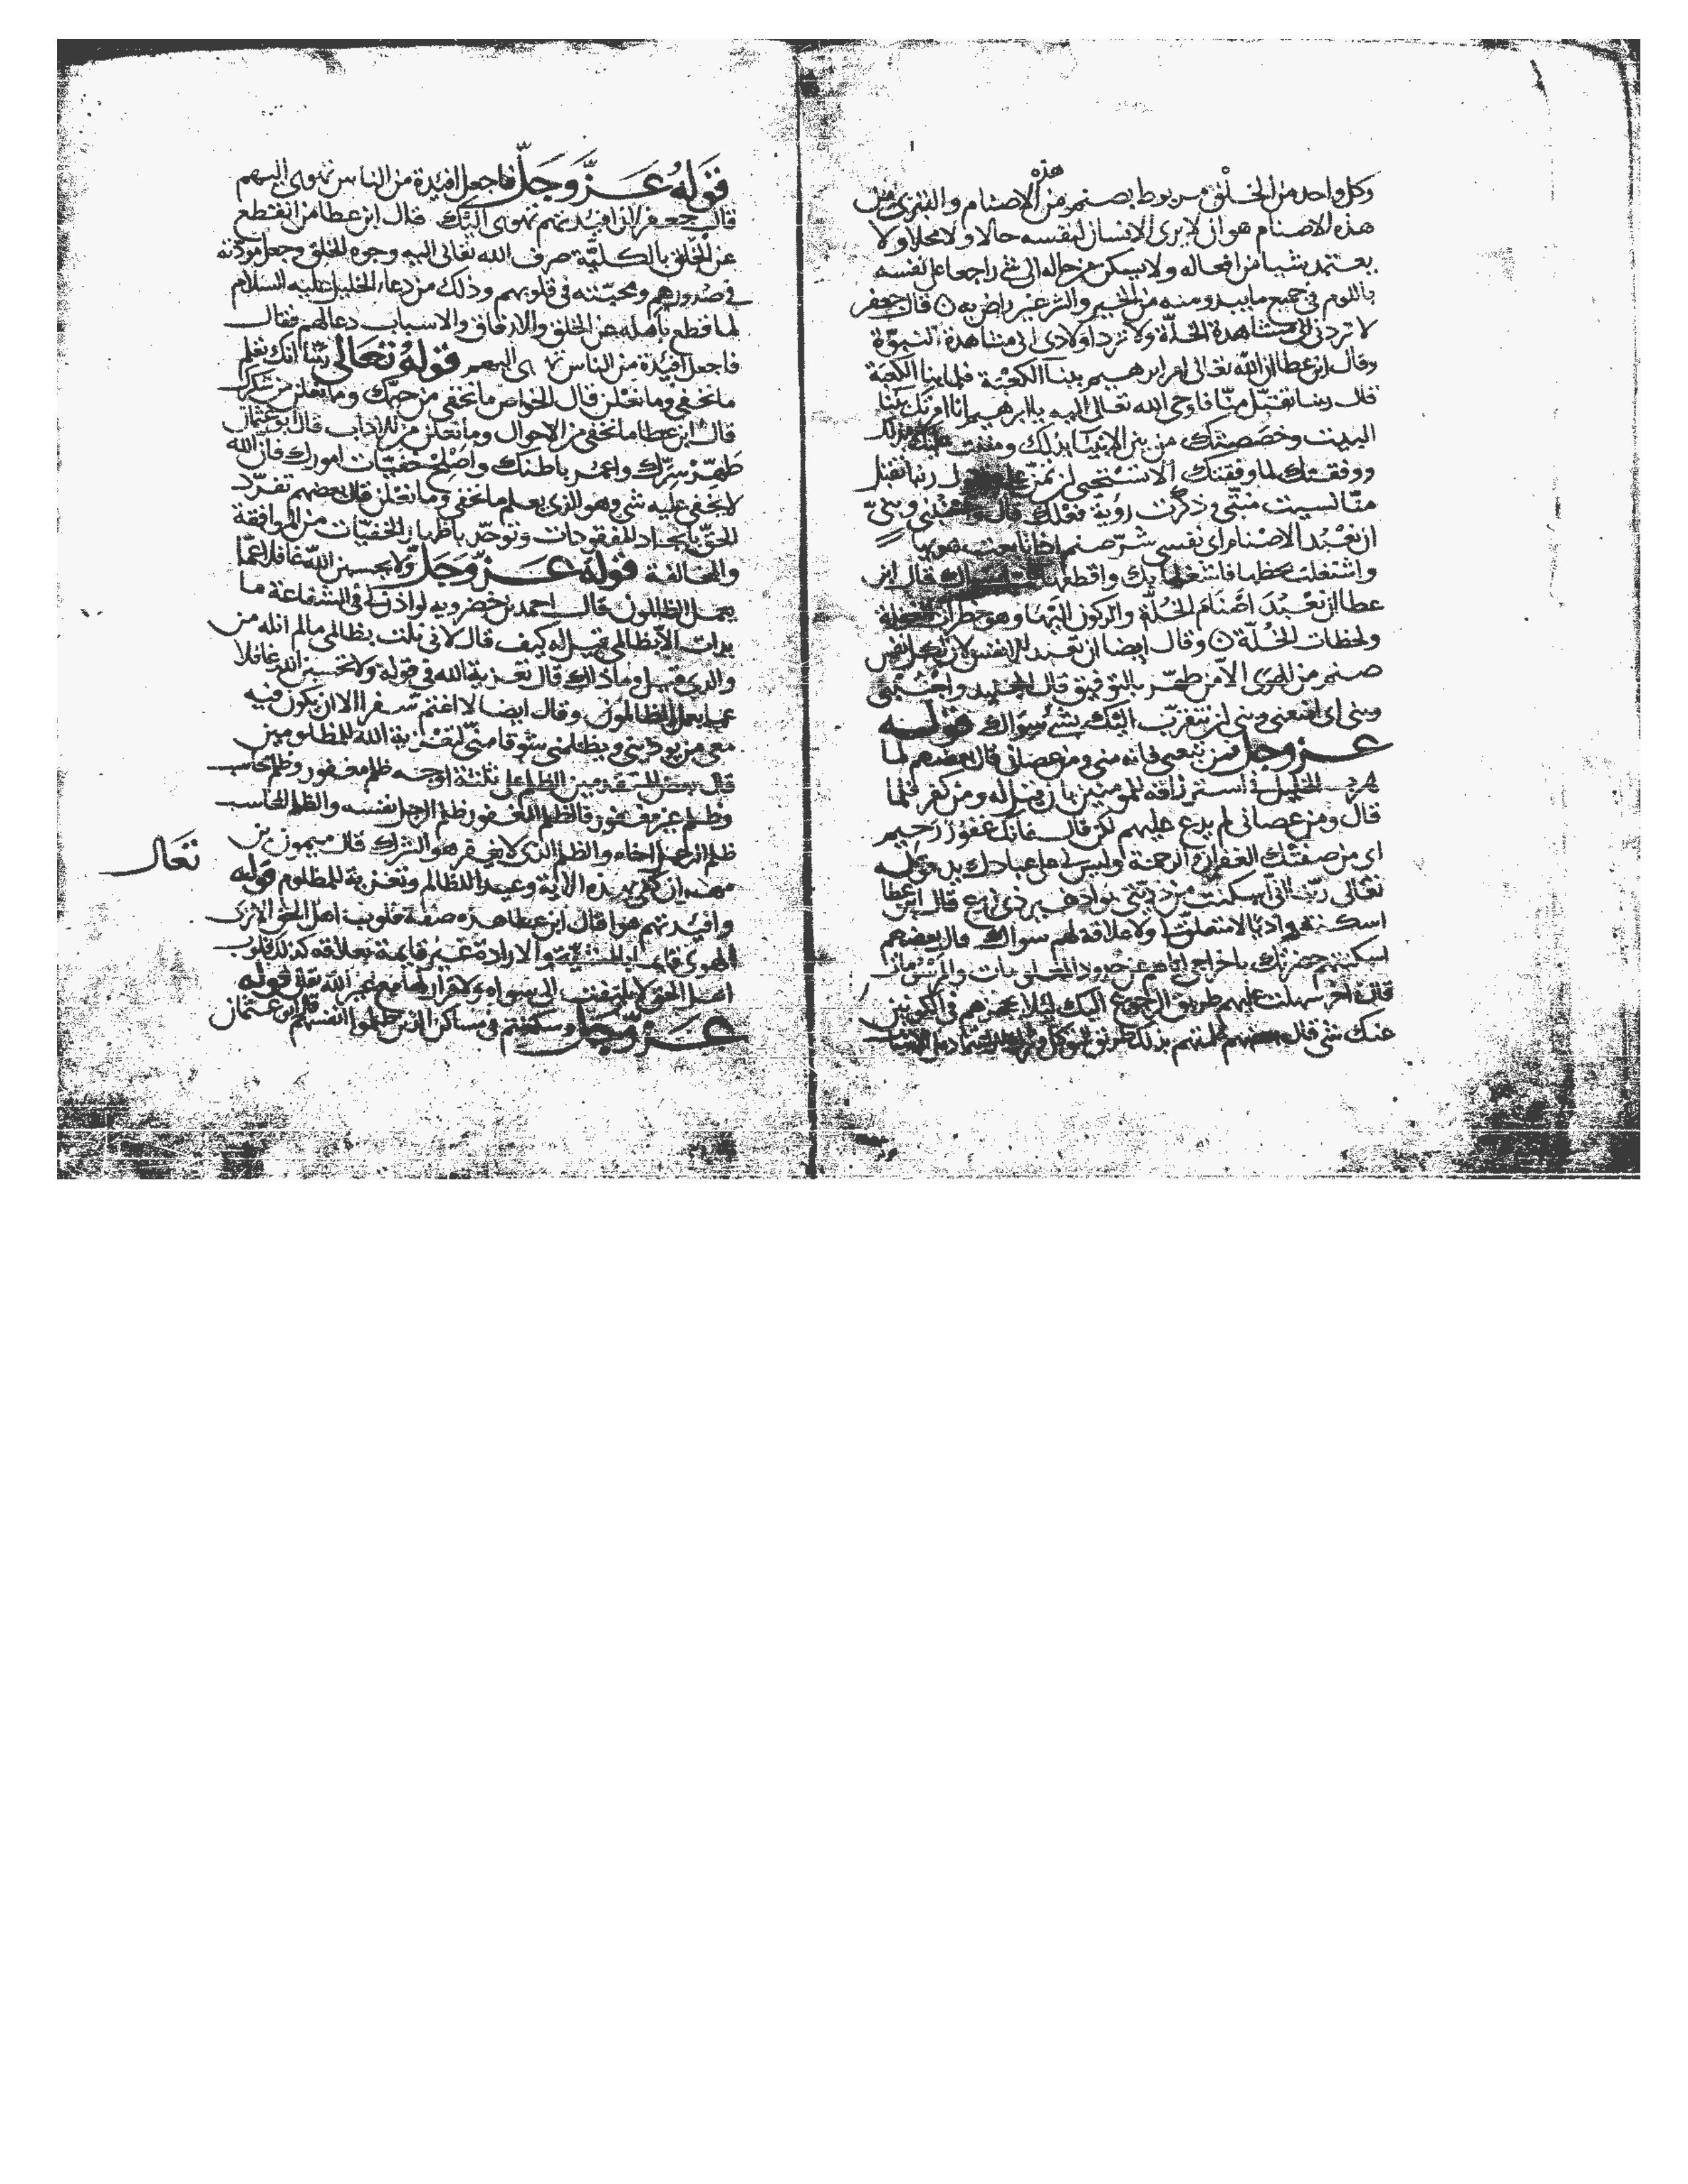 وكل واحد من الخلق مربوط بصنم من هذه الاصنام والتبرى من
هذه الاصنام هو ان لا يرى الانسان لنفسه حالا ولا محلا ولا
يعتمد شيا من افعاله ولا يسكن من حاله الى شى راجعا على نفسه
باللوم فى جميع ما يبدو منه من الخير والشر غير راض به قال جعفر
لا تردنى الى مشاهدة الخلة ولا ترد اولادى الى مشاهدة النبوة
وقال ابن عطا ان الله تعالى امر ابرهيم ببنا الكعبة فلما بنا الكعبة
قال ربنا تقبل منا فاوحى الله تعالى اليه يا ابرهيم انا امرتك ببنا
البيت وخصصتك من بين الانبيا بذلك ومننت عليك بذلك
ووفقتك لما وفقتك الا تستحيى ان تمن على وتقول ربنا تقبل
منا نسيت منتى وذكرت رؤية فعلك قال واجنبنى وبنى
ان نعبد الاصنام اى نفسى شر صنم اذا تابعت هويها
واشتغلت بحظها فاشغلها بك واقطعها عمن سواك قال ابن
عطا ان نعبد اصنام الخلة والركون اليها وهو خطرات الخلة
ولحظات الخلة وقال ايضا ان نعبد للنفس لان لكل نفس
صنم من الهوى الا من طهر بالتوفيق قال الجنيد واجنبنى
وبنى اى امنعنى وبنى ان نتقرب اليك بشى سواك قوله
عز وجل فمن تبعنى فانه منى ومن عصانى قال بعضهم لما
الخليل فى استرزاقه للمومنين بان قيل له ومن كفر فلما
قال ومن عصانى لم يدع عليهم لكن قال فانك غفور رحيم
اى من صفتك الغفران والرحمة وليس لى على عبادك يد قوله
تعالى ربنا انى اسكنت من ذريتى بواد غير ذى زرع قال ابن عطا
اسكنتهم واديا لا متعلق ولا علاقة لهم سواك قال بعضهم
اسكنتهم حضرتك باخراجى اياهم عن حدود المعلومات والمرسومات
قال اخر سهلت عليهم طريق الرجوع اليك لئلا يعجزهم فى الكونين
عنك شى قال بعضهم دللتهم بذلك طريق التوكل وترك الاعتماد على الاسباب
قوله عز وجل فاجعل افئدة من الناس تهوى اليهم
قال جعفر لان افئدتهم تهوى اليك قال ابن عطا من انقطع
عن الخلق بالكلية صرف الله تعالى اليه وجوه الخلق وجعل مودته
فى صدورهم ومحبته فى قلوبهم وذلك من دعاء الخليل عليه السلام
لما قطع باهله عن الخلق والارفاق والاسباب دعا لهم فقال
فاجعل افئدة من الناس تهوى اليهم قوله تعالى ربنا انك تعلم
ما نخفى وما نعلن قال الخواص ما نخفى من حبك وما نعلن من شكرك
قال ابن عطا ما نخفى من الاحوال وما نعلن من الاداب قال ابو عثمان
طهر سرك واعمر باطنك واصلح خفيات امورك فان الله
لا يخفى عليه شى وهو الذى يعلم ما نخفى وما نعلن قال بعضهم تفرد
الحق بايجاد المفقودات وتوحد باظهار الخفيات من الموافقة
والمخالفة قوله عز وجل ولا تحسبن الله غافلا عما
يعمل الظالمون قال احمد بن خضرويه لو اذن لى فى الشفاعة ما
بدات الا بظالمى قيل له كيف قال لانى نلت بظالمى ما لم انله من
والدى قيل وما ذلك قال تعزية الله فى قوله ولا تحسبن الله غافلا
عما يعمل الظالمون وقال ايضا لا اغتنم سفرا الا ان يكون فيه
معى من يوذينى ويظلمنى شوقا منى لتعزية الله للمظلومين
قال بعض المتقدمين الظلم على ثلثة اوجه ظلم مغفور وظلم محاسب
وظلم غير مغفور فالظلم المغفور ظلم الرجل نفسه والظلم المحاسب
ظلم الرجل اخاه والظلم الذى لا يغفر هو الشرك قال ميمون بن
مهران كفى بهذه الاية وعيدا للظالم وتعزية للمظلوم قوله
تعالى
وافئدتهم هوا قال ابن عطا هذه صفة قلوب اهل الحق الا ترى
الهوى قائما بالمشيئة والارادة غير قايمة بعلاقه كذلك قلوب
اهل الحق لا يلتفت الى سواه ولا قرار لها مع غير الله تعالى قوله
عز وجل وسكنتم فى مساكن الذين ظلموا انفسهم قال ابو عثمان